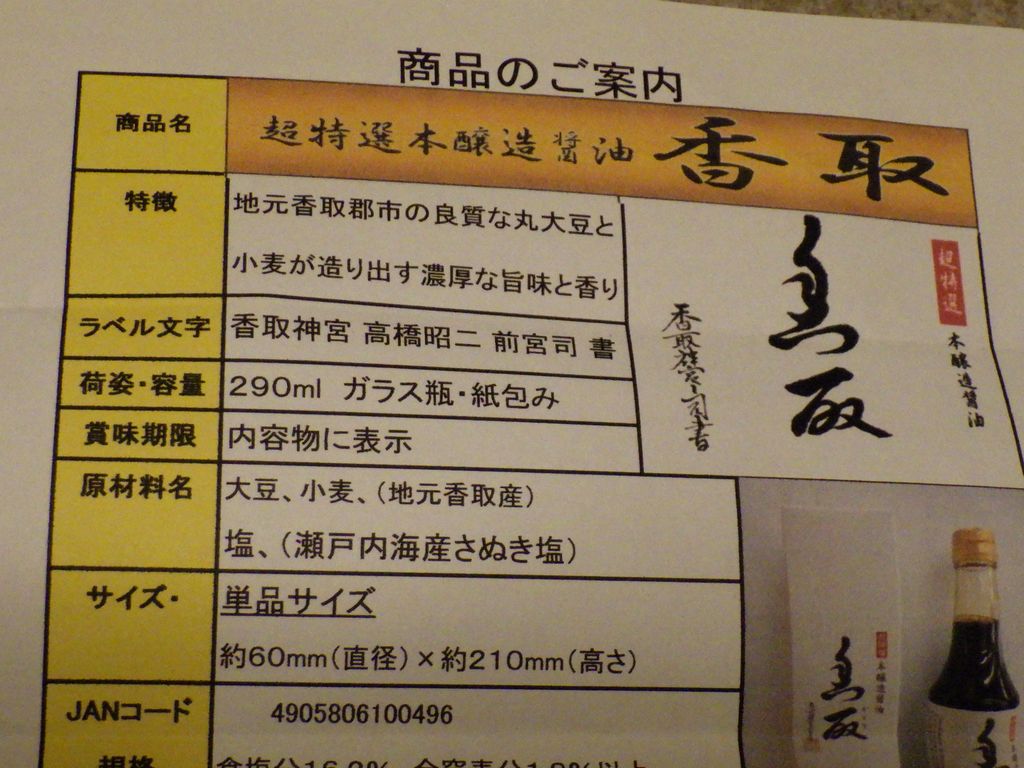 商品のご案内
商品名
超特選本醸造醤油 香取
特徴
地元香取郡市の良質な丸大豆と
小麦が造り出す濃厚な旨味と香り
ラベル文字
香取神宮 高橋昭二 前宮司 書
荷姿・容量
290ml ガラス瓶・紙包み
賞味期限
内容物に表示
原材料名
大豆、小麦、(地元香取産)
塩、(瀬戸内海産さぬき塩)
サイズ・
単品サイズ
約60mm(直径)×約210mm(高さ)
JANコード
4905806100496
規格
食塩分16.2% 全窒素分1.8%以上
超特選
本醸造醤油
香取